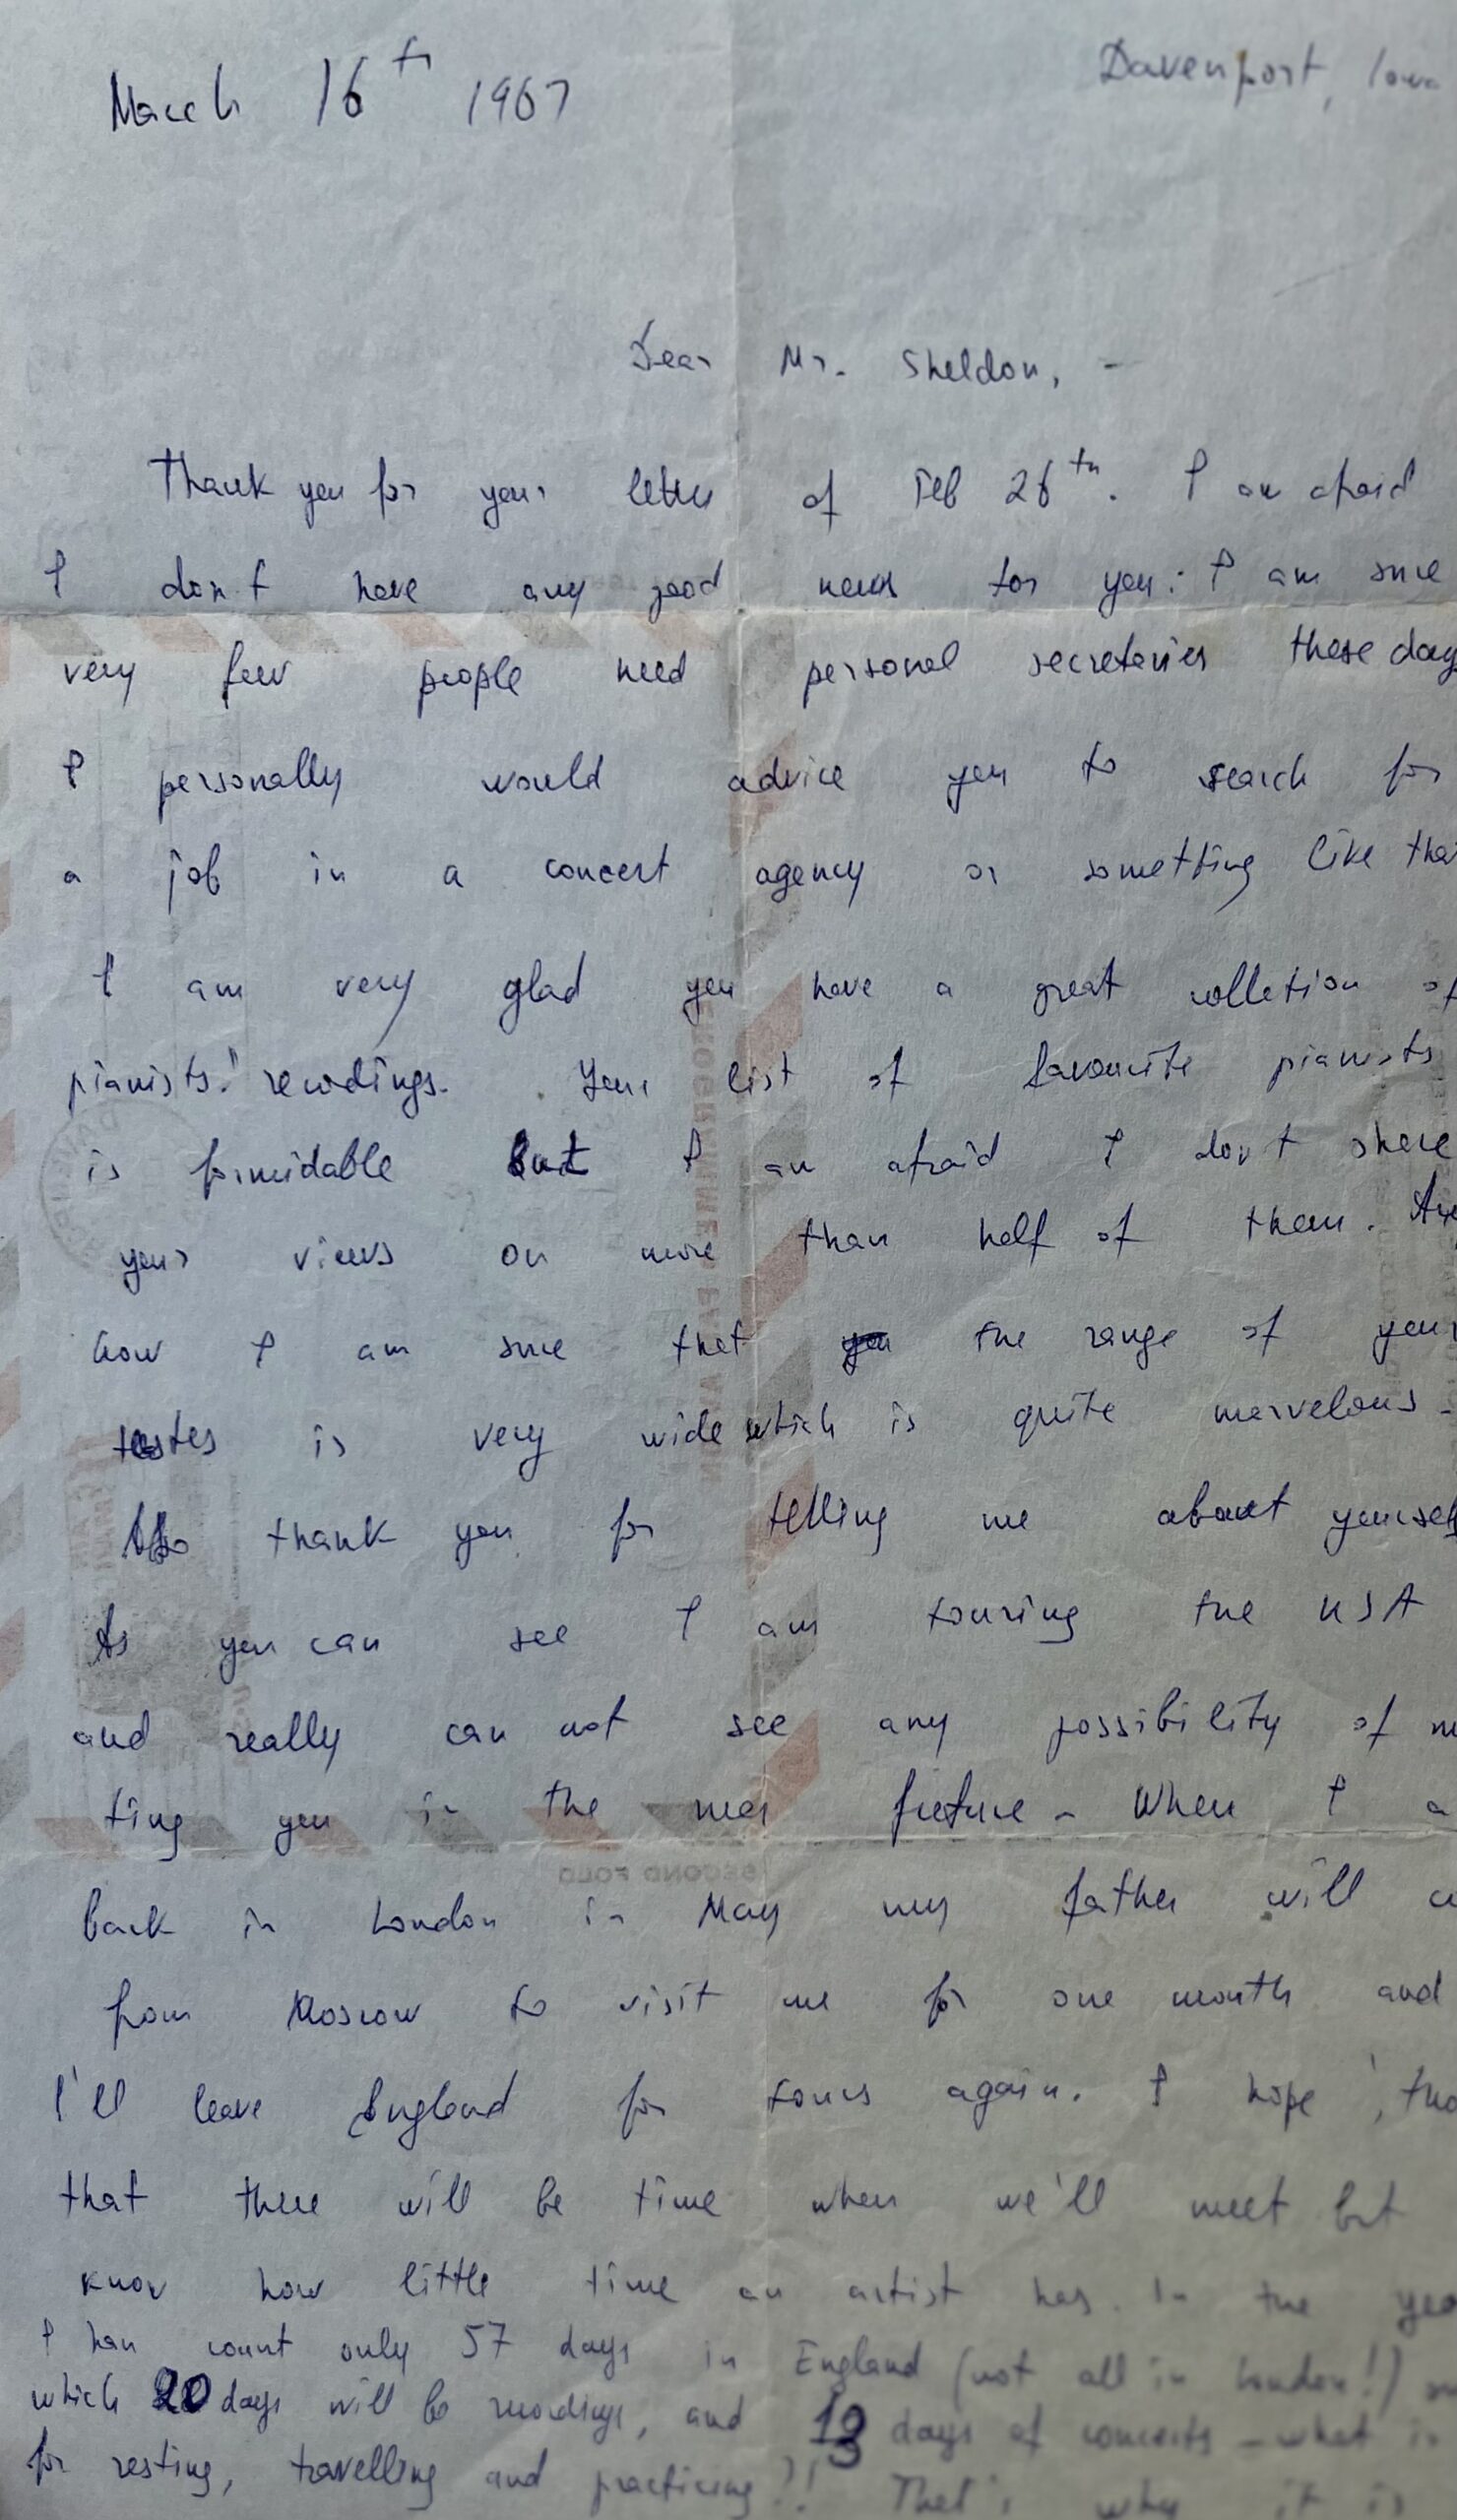 March 16th 1967
Davenport, Iowa
Dear Mr. Sheldon, -
Thank you for your letter of Feb 26th. I am afraid
I don't have any good news for you: I am sure
very few people need personal secretaries these day
I personally would advice you to search for
a job in a concert agency or something like tha
I am very glad you have a great colletion of
pianists' recordings. Your list of favourite pianists
is formidable but I am afraid I don't share
your views on more than half of them. Any
how I am sure that the range of your
tastes is very wide which is quite marvelous.
Also thank you for telling me about yoursel
As you can see I am touring the USA
and really can not see any possibility of
ting you in the near future - When I a
back in London in May my father will
from Moscow to visit me for one month and
I'll leave England for tours again. I hope, tho
that there will be time when we'll meet but
know how little time an artist has. In the yea
I han count only 57 days in England (not all in London!)
which 20 days will be recordings, and 13 days of concerts - what is
for resting, travelling and practicing?! That's why it is
SECOND FOLD